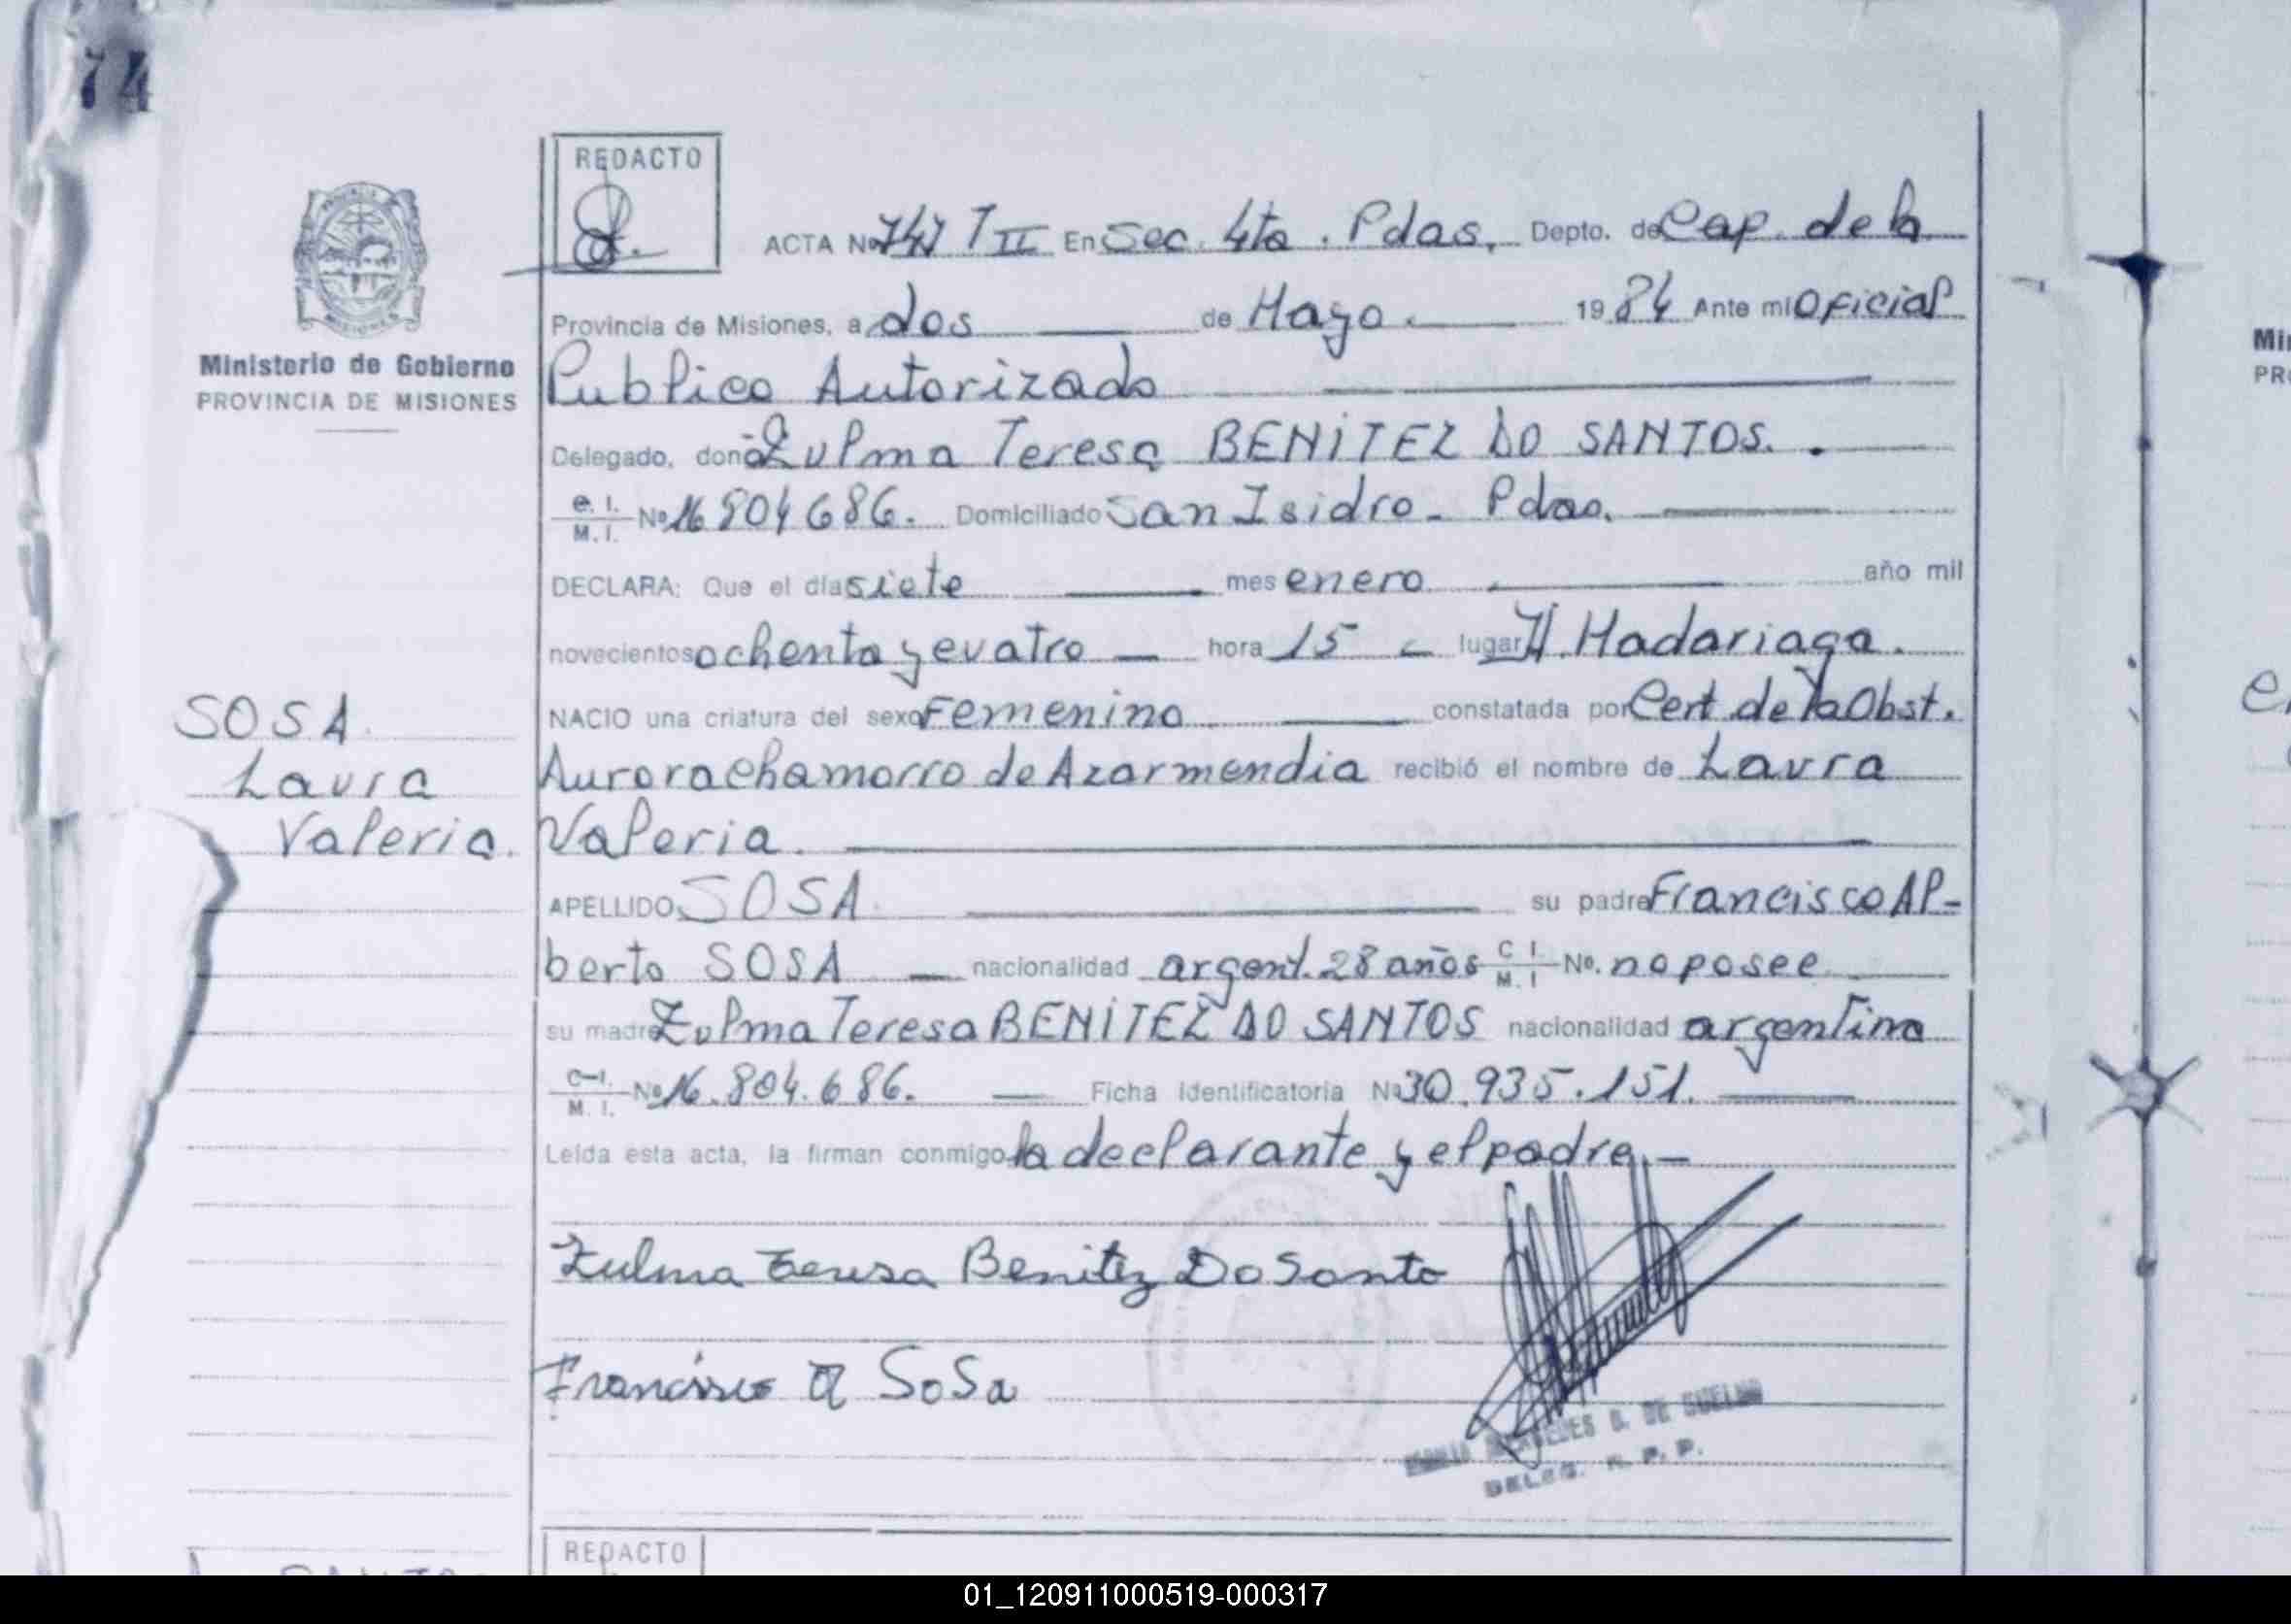 74
REDACTO
ACTA Nº 747 T II En Sec. 4ta. Pdas, Depto. de Cap. de la
Provincia de Misiones, a dos de Mayo. 1984 Ante mi Oficial
Ministerio de Gobierno
PROVINCIA DE MISIONES
Publico Autorizado
Delegado, doña Zulma Teresa BENITEZ DO SANTOS.
C. I. M. I. Nº 16 804 686. Domiciliado San Isidro - Pdas.
DECLARA: Que el día siete mes enero año mil
novecientos ochenta y cuatro hora 15 lugar H. Madariaga.
SOSA
Laura
Valeria.
NACIO una criatura del sexo Femenino constatada por Cert. de la Obst.
Aurora Chamorro de Azarmendia recibió el nombre de Laura
Valeria.
APELLIDO SOSA su padre Francisco Al-
berto SOSA nacionalidad argent. 28 años C I M. I No. no posee
su madre Zulma Teresa BENITEZ DO SANTOS nacionalidad argentina
C-I. M. I. Nº 16.804.686. Ficha Identificatoria Nº 30.935.151.
Leída esta acta, la firman conmigo la declarante y el padre.-
Zulma Teresa Benitez Do Santo
Francisco A Sosa
DELEG. R. P. P.
REDACTO
01_120911000519-000317